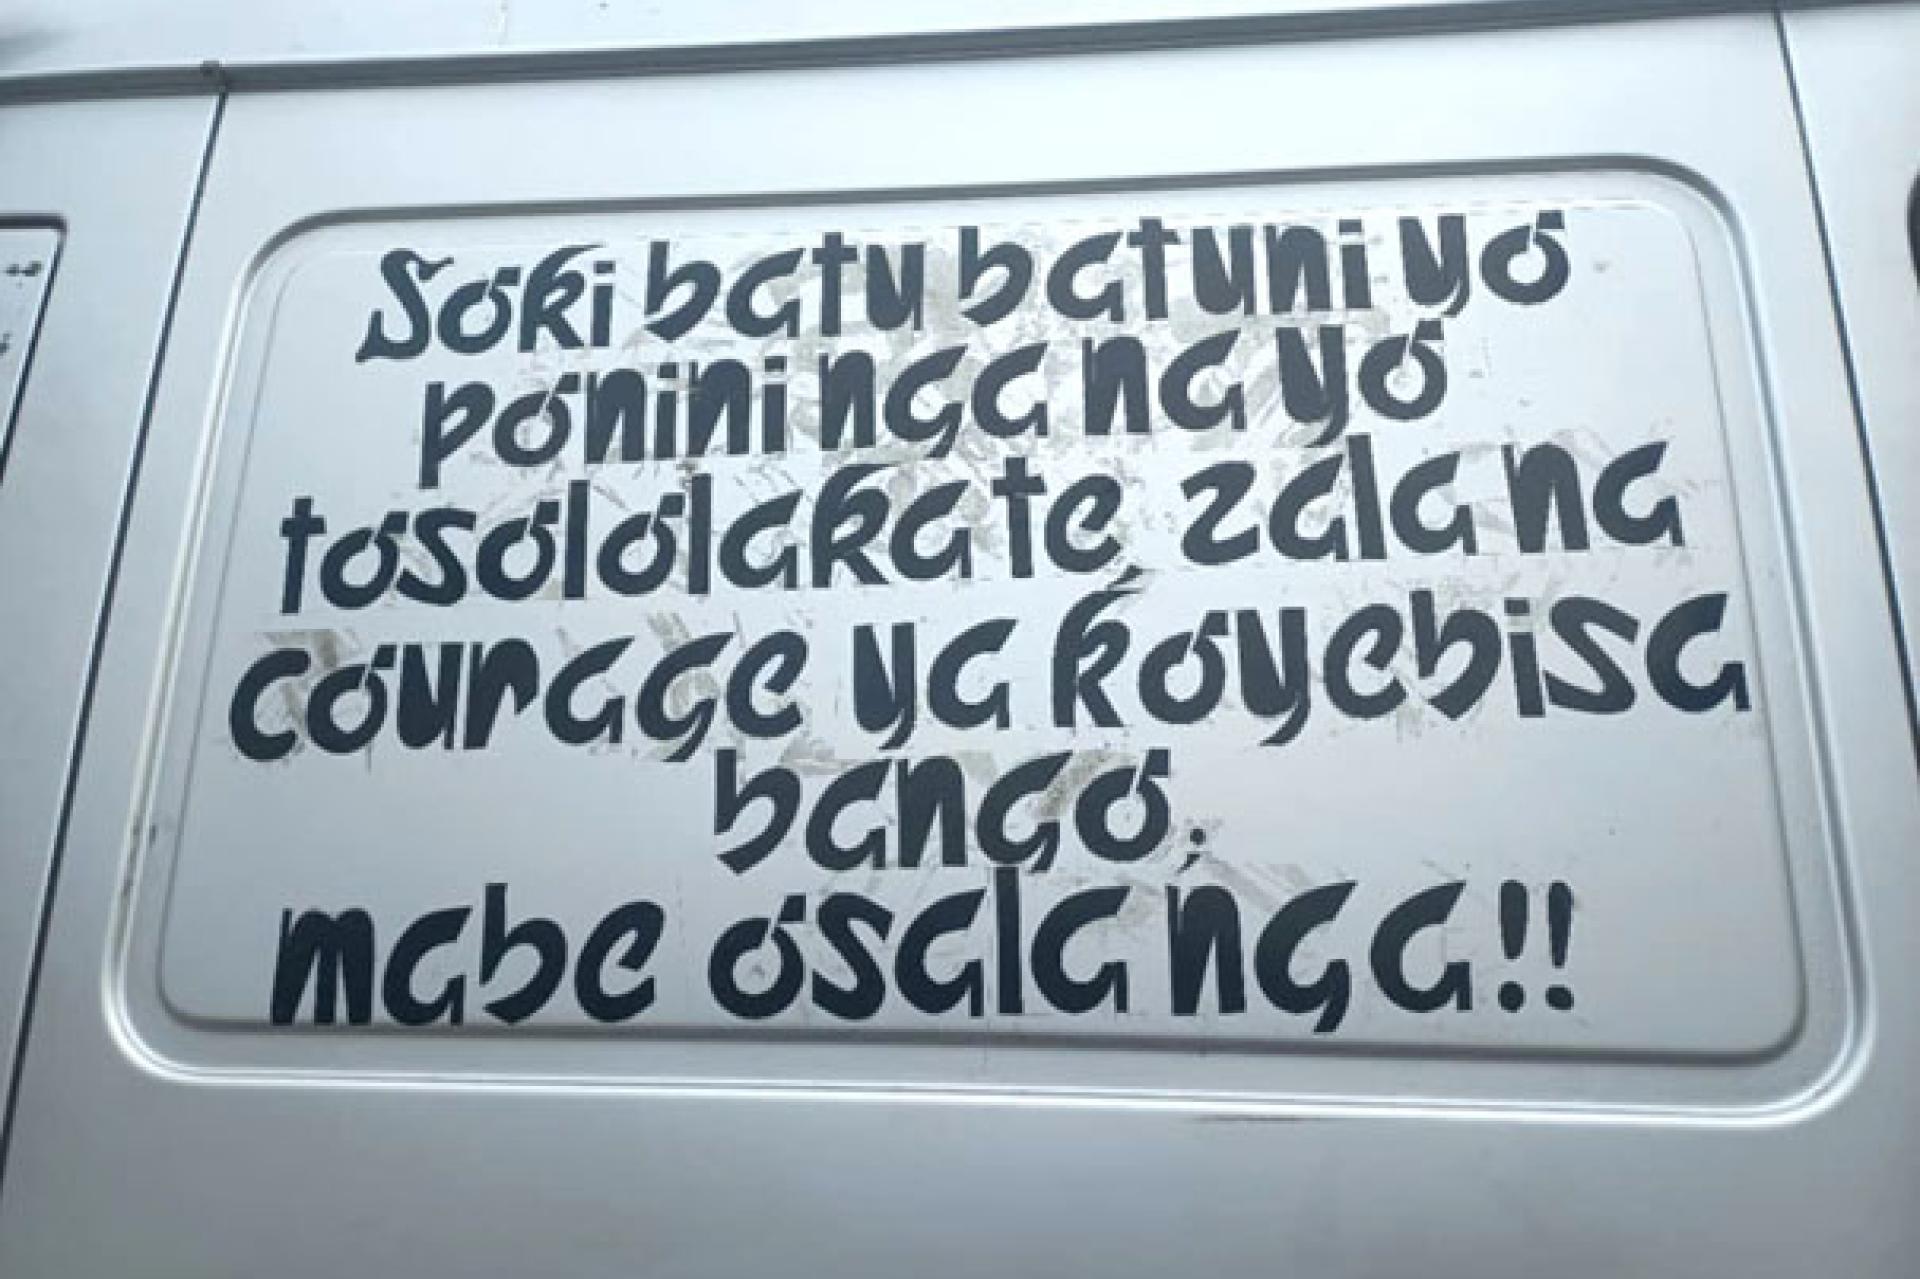 Soki batu batuni yo
ponini nga na yo
tosololaka te, zala na
courage ya koyebisa
bango;
mabe osala nga!!